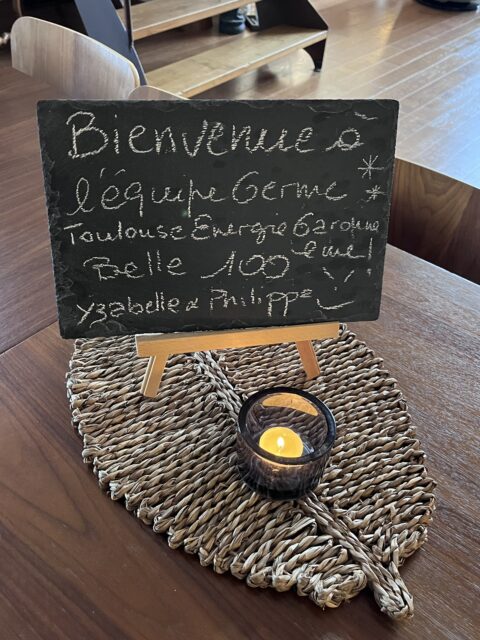 Bienvenue à
l'équipe Germe
Toulouse Energie Garonne
Belle 100ème!
Yzabelle & Philippe